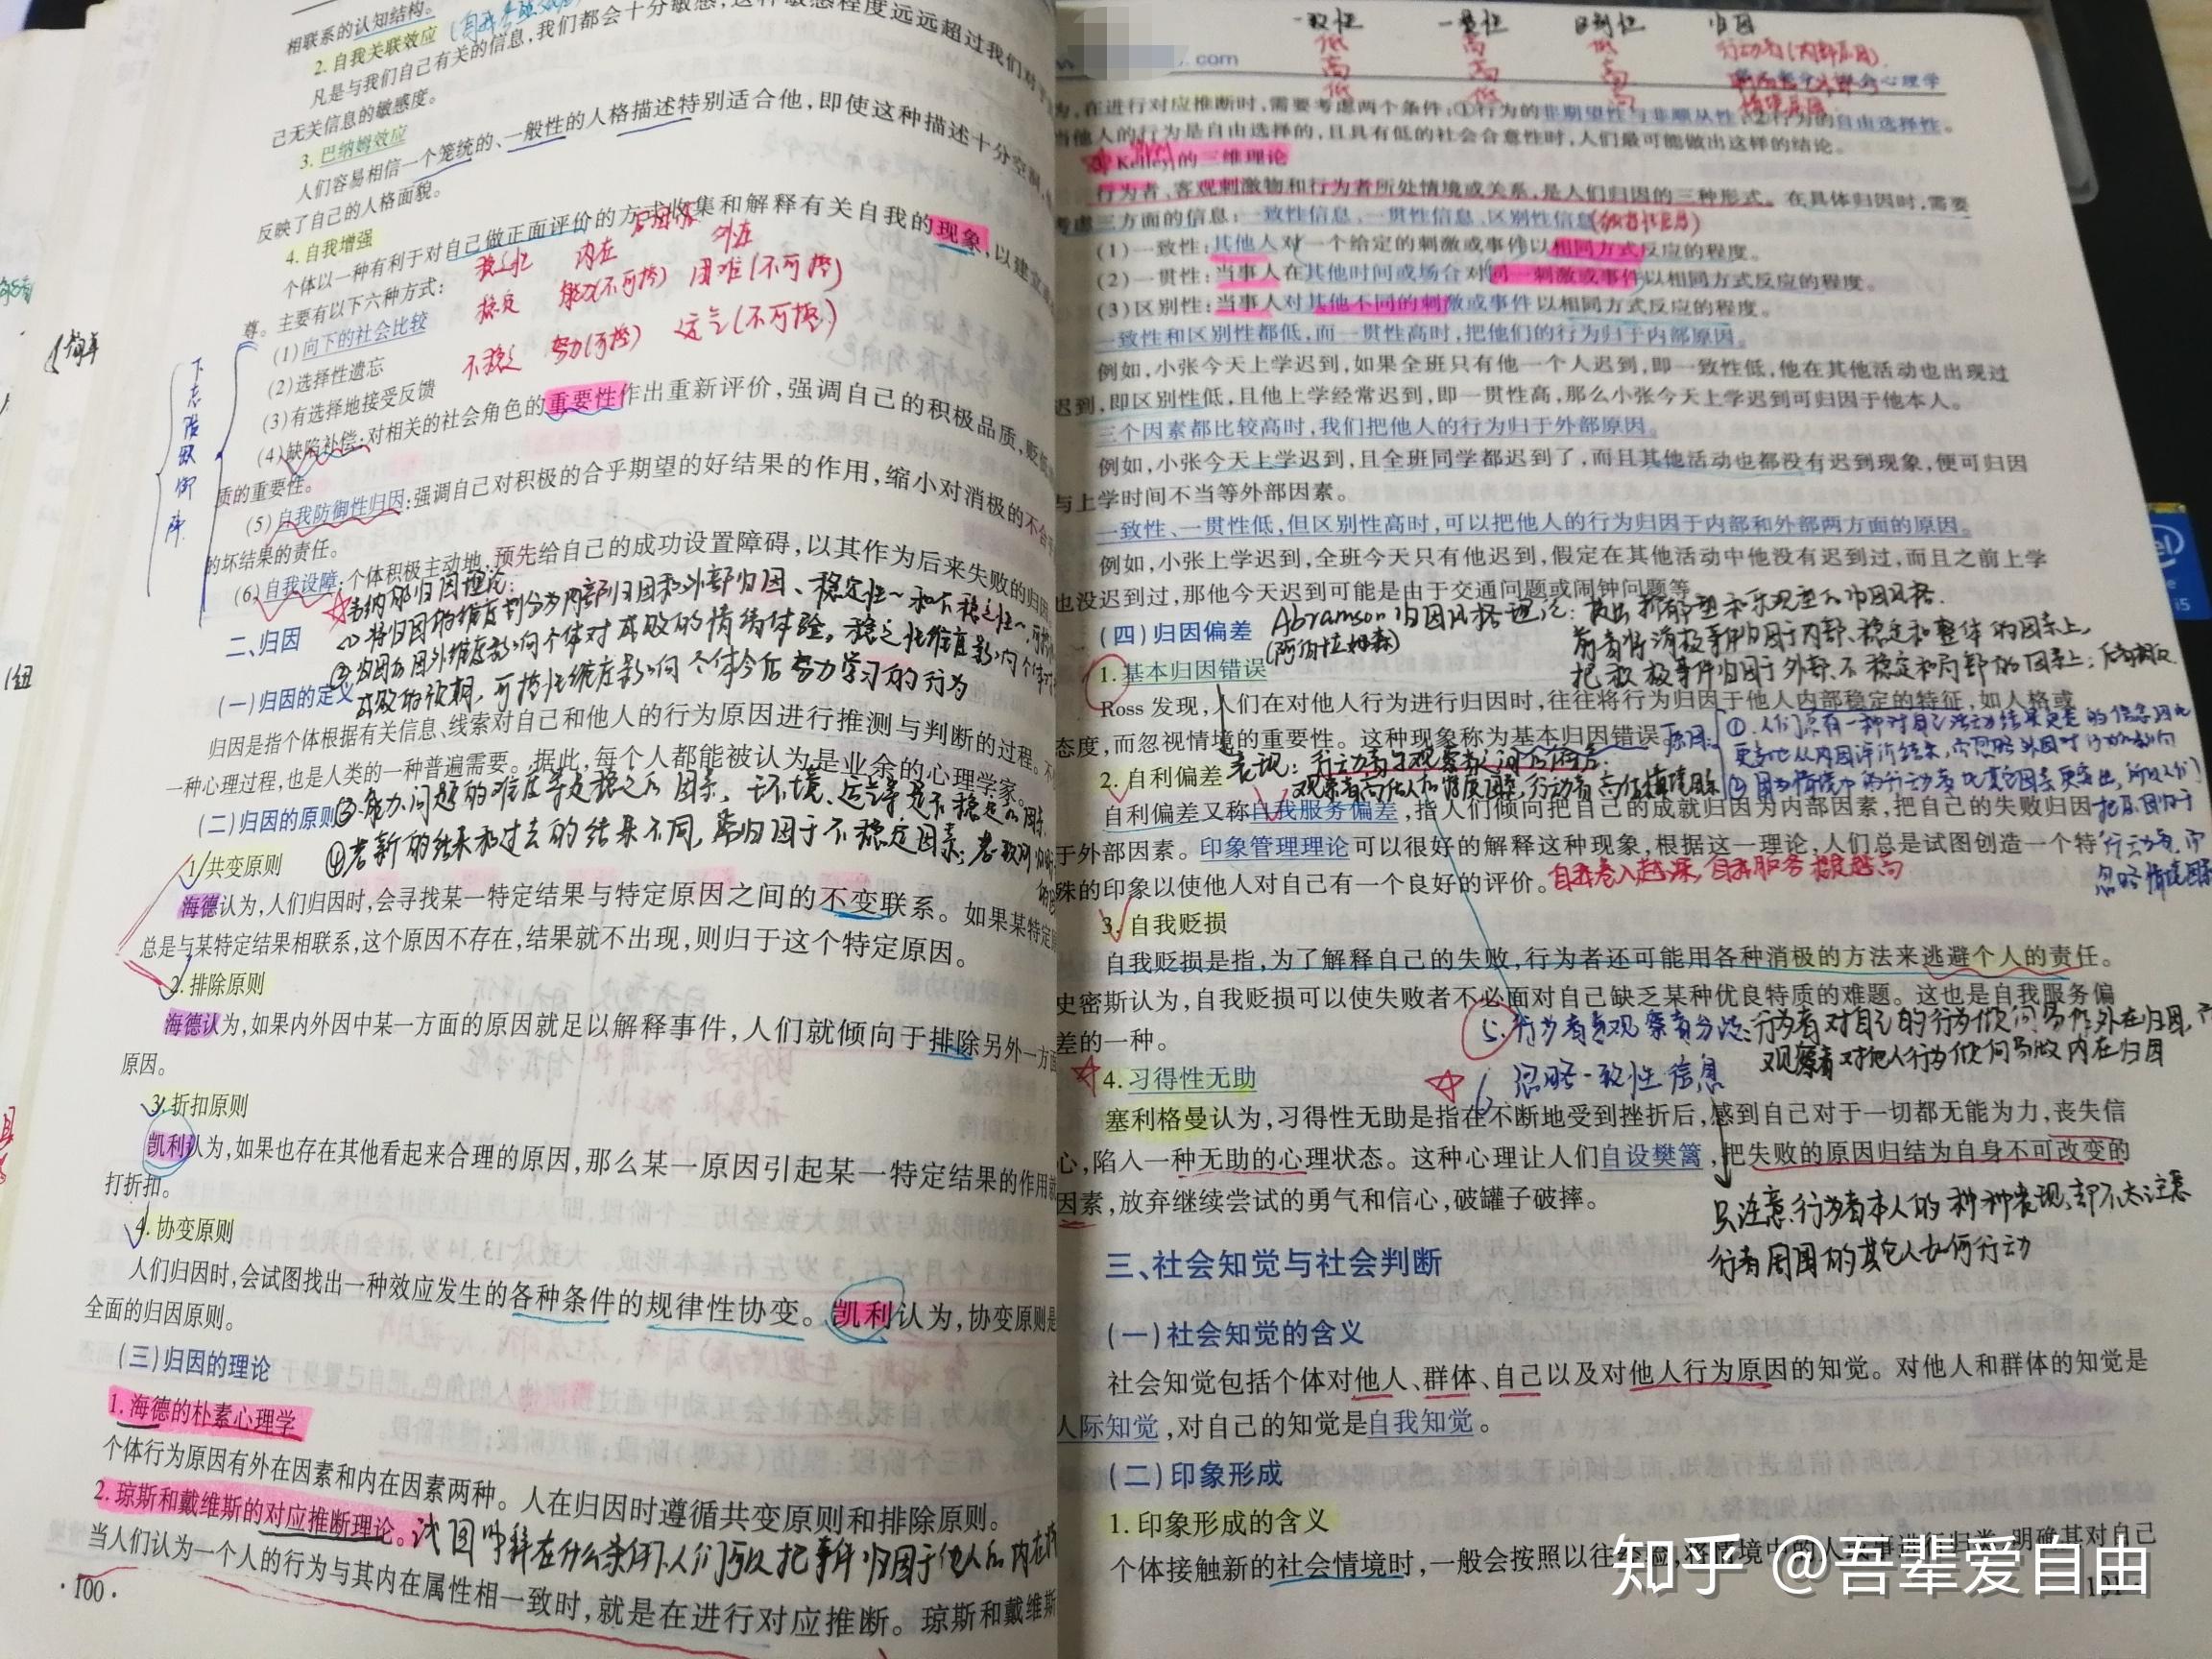 相联系的认知结构。
2. 自我关联效应
凡是与我们自己有关的信息,我们都会十分敏感,这种敏感程度远远超过我们对于
己无关信息的敏感度。
3. 巴纳姆效应
人们容易相信一个笼统的、一般性的人格描述特别适合他,即使这种描述十分空洞
反映了自己的人格面貌。
4. 自我增强
个体以一种有利于对自己做正面评价的方式收集和解释有关自我的现象,以建立
尊。主要有以下六种方式:
稳定性 内在 外在
稳定 能力(不可控) 困难(不可控)
不稳定 努力(可控) 运气(不可控)
(1)向下的社会比较
(2)选择性遗忘
(3)有选择地接受反馈
(4)缺陷补偿:对相关的社会角色的重要性作出重新评价,强调自己的积极品质,贬低
质的重要性。
(5)自我防御性归因:强调自己对积极的合乎期望的好结果的作用,缩小对消极的不合乎
的坏结果的责任。
(6)自我设障:个体积极主动地,预先给自己的成功设置障碍,以其作为后来失败的归因
下志陷缺御障
韦纳的归因理论:
① 将归因的维度划分为内部归因和外部归因、稳定性~和不稳定性~、可控
②归因的内外维度影响个体对成败的情绪体验,稳定性维度影响个体对
成败的预期,可控性维度影响个体今后努力学习的行为
二、归因
(一)归因的定义
归因是指个体根据有关信息、线索对自己和他人的行为原因进行推测与判断的过程。
一种心理过程,也是人类的一种普遍需要。据此,每个人都能被认为是业余的心理学家。
③能力、问题的难度等是稳定的因素,环境、运气等是不稳定的因素
(二)归因的原则
④若新的结果和过去的结果不同,常归因于不稳定因素;若
1. 共变原则
海德认为,人们归因时,会寻找某一特定结果与特定原因之间的不变联系。如果某特定
总是与某特定结果相联系,这个原因不存在,结果就不出现,则归于这个特定原因。
2. 排除原则
海德认为,如果内外因中某一方面的原因就足以解释事件,人们就倾向于排除另外一方面
原因。
3. 折扣原则
凯利认为,如果也存在其他看起来合理的原因,那么某一原因引起某一特定结果的作用就
打折扣。
4. 协变原则
人们归因时,会试图找出一种效应发生的各种条件的规律性协变。凯利认为,协变原则是
全面的归因原则。
(三)归因的理论
1. 海德的朴素心理学
个体行为原因有外在因素和内在因素两种。人在归因时遵循共变原则和排除原则。
2. 琼斯和戴维斯的对应推断理论。试图解释在什么条件下人们可以把事件归因于他人的内在
当人们认为一个人的行为与其内在属性相一致时,就是在进行对应推断。琼斯和戴维斯
·100·
一致性 一贯性 区别性 归因
低 高 低 行动者(内部原因)
高 高 高
低 低 高
.com
心理学
为,在进行对应推断时,需要考虑两个条件:①行为的非期望性与非顺从性;②行为的自由选择性。
当他人的行为是自由选择的,且具有低的社会合意性时,人们最可能做出这样的结论。
Kelley的三维理论
行为者、客观刺激物和行为者所处情境或关系,是人们归因的三种形式。在具体归因时,需要
考虑三方面的信息:一致性信息、一贯性信息、区别性信息
(1)一致性:其他人对一个给定的刺激或事件以相同方式反应的程度。
(2)一贯性:当事人在其他时间或场合对同一刺激或事件以相同方式反应的程度。
(3)区别性:当事人对其他不同的刺激或事件以相同方式反应的程度。
一致性和区别性都低,而一贯性高时,把他们的行为归于内部原因。
例如,小张今天上学迟到,如果全班只有他一个人迟到,即一致性低,他在其他活动也出现过
迟到,即区别性低,且他上学经常迟到,即一贯性高,那么小张今天上学迟到可归因于他本人。
三个因素都比较高时,我们把他人的行为归于外部原因。
例如,小张今天上学迟到,且全班同学都迟到了,而且其他活动也都没有迟到现象,便可归因
与上学时间不当等外部因素。
一致性、一贯性低,但区别性高时,可以把他人的行为归因于内部和外部两方面的原因。
例如,小张上学迟到,全班今天只有他迟到,假定在其他活动中他没有迟到过,而且之前上学
也没迟到过,那他今天迟到可能是由于交通问题或闹钟问题等
(四)归因偏差
Abramson 归因风格理论:提出抑郁型和乐观型的归因风格.
(阿伯拉姆森)
前者将消极事件归因于内部、稳定和整体的因素上,
把积极事件归因于外部、不稳定和局部的因素上;后者相反
1. 基本归因错误
Ross 发现,人们在对他人行为进行归因时,往往将行为归因于他人内部稳定的特征,如人格或
态度,而忽视情境的重要性。这种现象称为基本归因错误。
2. 自利偏差
表现:行动者与观察者之间的偏差.
观察者高估他人的特质因素,行动者高估情境因素
自利偏差又称自我服务偏差,指人们倾向把自己的成就归因为内部因素,把自己的失败归因
于外部因素。印象管理理论可以很好的解释这种现象,根据这一理论,人们总是试图创造一个特
殊的印象以使他人对自己有一个良好的评价。自我卷入越深,自我服务程度越高
3. 自我贬损
自我贬损是指,为了解释自己的失败,行为者还可能用各种消极的方法来逃避个人的责任。
史密斯认为,自我贬损可以使失败者不必面对自己缺乏某种优良特质的难题。这也是自我服务偏
差的一种。
5. 行为者与观察者分歧:行为者对自己的行为倾向于作外在归因,
观察者对他人行为倾向于做内在归因
6. 忽略一致性信息
4. 习得性无助
塞利格曼认为,习得性无助是指在不断地受到挫折后,感到自己对于一切都无能为力,丧失信
心,陷入一种无助的心理状态。这种心理让人们自设樊篱,把失败的原因归结为自身不可改变的
因素,放弃继续尝试的勇气和信心,破罐子破摔。
只注意行为者本人的种种表现,却不太注意
行者周围的其它人如何行动
三、社会知觉与社会判断
(一)社会知觉的含义
社会知觉包括个体对他人、群体、自己以及对他人行为原因的知觉。对他人和群体的知觉是
人际知觉,对自己的知觉是自我知觉。
(二)印象形成
1. 印象形成的含义
个体接触新的社会情境时,一般会按照以往经验,将情境中的人或事进行归类,明确其对自己
知乎 @吾辈爱自由